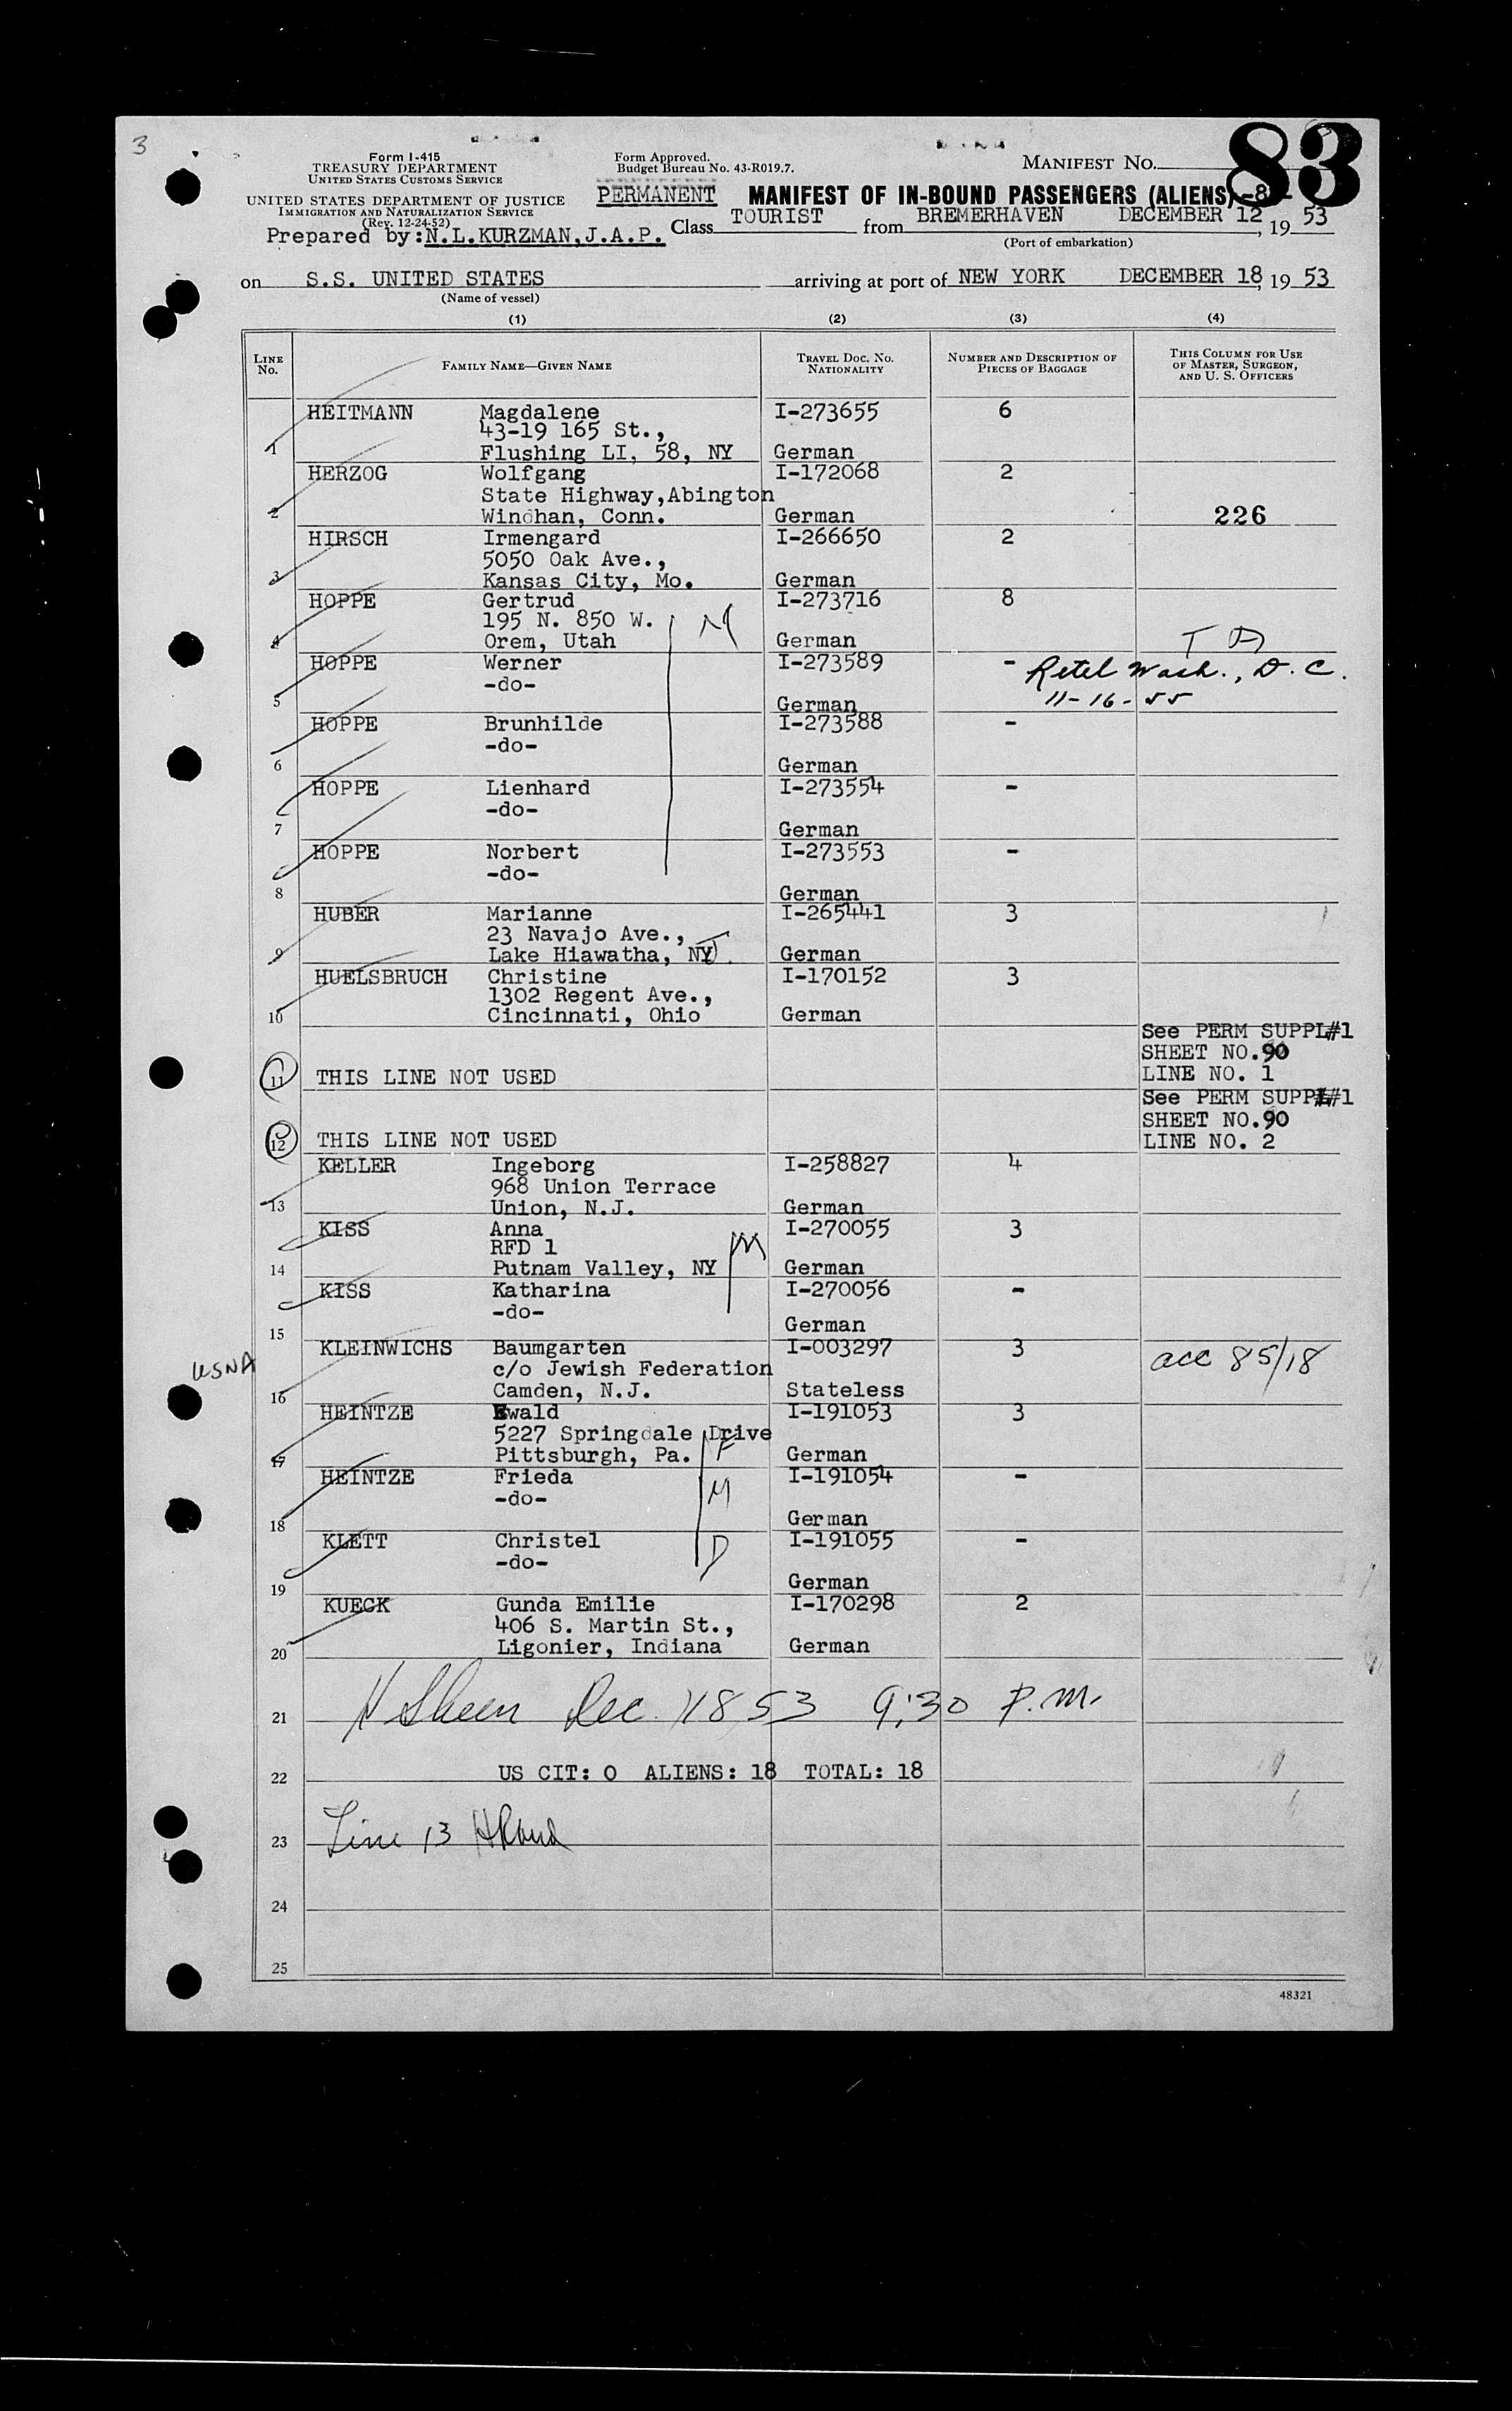 3
Form I-415
TREASURY DEPARTMENT
UNITED STATES CUSTOMS SERVICE
UNITED STATES DEPARTMENT OF JUSTICE
IMMIGRATION AND NATURALIZATION SERVICE
(Rev. 12-24-52)
Prepared by:N.L.KURZMAN,J.A.P.
Form Approved.
Budget Bureau No. 43-R019.7.
MANIFEST NO.
83
PERMANENT MANIFEST OF IN-BOUND PASSENGERS (ALIENS)
Class TOURIST from BREMERHAVEN DECEMBER 12, 19 53
(Port of embarkation)
on S.S. UNITED STATES arriving at port of NEW YORK DECEMBER 18, 19 53
(Name of vessel)
(1) (2) (3) (4)
LINE No. FAMILY NAME—GIVEN NAME TRAVEL DOC. NO. NATIONALITY NUMBER AND DESCRIPTION OF PIECES OF BAGGAGE THIS COLUMN FOR USE OF MASTER, SURGEON, AND U. S. OFFICERS
HEITMANN Magdalene I-273655 6
43-19 165 St.,
1 Flushing LI, 58, NY German
HERZOG Wolfgang I-172068 2
State Highway,Abington
2 Windhan, Conn. German 226
HIRSCH Irmengard I-266650 2
5050 Oak Ave.,
3 Kansas City, Mo. German
HOPPE Gertrud I-273716 8
195 N. 850 W. M
4 Orem, Utah German T A
HOPPE Werner I-273589 - Retel Wash., D.C.
-do-
5 German 11-16-55
HOPPE Brunhilde I-273588 -
-do-
6 German
HOPPE Lienhard I-273554 -
-do-
7 German
HOPPE Norbert I-273553 -
-do-
8 German
HUBER Marianne I-265441 3
23 Navajo Ave.,
9 Lake Hiawatha, NY J German
HUELSBRUCH Christine I-170152 3
1302 Regent Ave.,
10 Cincinnati, Ohio German
See PERM SUPPL#1
SHEET NO.90
11 THIS LINE NOT USED LINE NO. 1
See PERM SUPPL#1
SHEET NO.90
12 THIS LINE NOT USED LINE NO. 2
KELLER Ingeborg I-258827 4
968 Union Terrace
13 Union, N.J. German
KISS Anna I-270055 3
RFD 1 M
14 Putnam Valley, NY German
KISS Katharina I-270056 -
-do-
15 German
KLEINWICHS Baumgarten I-003297 3
USNA c/o Jewish Federation acc 85/18
16 Camden, N.J. Stateless
HEINTZE Ewald I-191053 3
5227 Springdale Drive
17 Pittsburgh, Pa. F German
HEINTZE Frieda I-191054 -
-do- M
18 German
KLETT Christel I-191055 -
-do- D
19 German
KUECK Gunda Emilie I-170298 2
406 S. Martin St.,
20 Ligonier, Indiana German
21 Dec. 18 53 9:30 P.M.
22 US CIT: 0 ALIENS: 18 TOTAL: 18
23 Line 13
24
25
48321